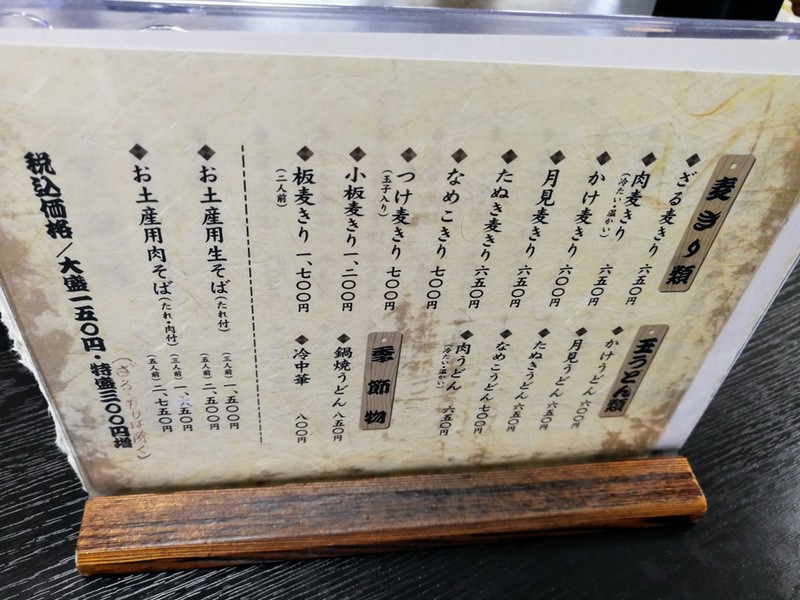 麦きり類
ざる麦きり 六五〇円
肉麦きり (冷たい・温かい) 六五〇円
かけ麦きり 五五〇円
月見麦きり 六〇〇円
たぬき麦きり 六五〇円
なめこきり 七〇〇円
つけ麦きり (玉子入り) 七〇〇円
小板麦きり 一、二〇〇円
板麦きり (二人前) 一、七〇〇円
玉うどん類
かけうどん 五五〇円
月見うどん 六〇〇円
たぬきうどん 六五〇円
なめこうどん 七〇〇円
肉うどん (冷たい・温かい) 六五〇円
季節物
鍋焼うどん 八五〇円
冷中華 八〇〇円
お土産用生そば(たれ付) (三人前) 一、五〇〇円
(五人前) 二、五〇〇円
お土産用肉そば(たれ・肉付) (三人前) 一、六五〇円
(五人前) 二、七五〇円
税込価格/大盛一五〇円・特盛三〇〇円増